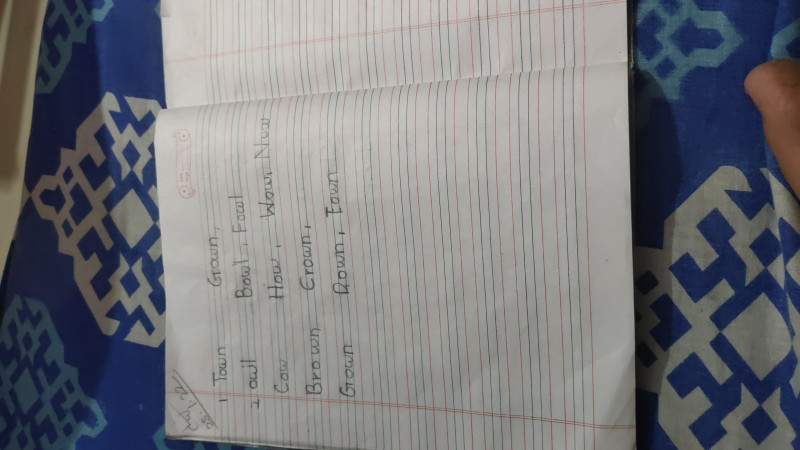 1 Town Grown,
2 owl Bowl, Fowl
Cow How, Wow Now
Brown Crown,
Gown Down, Town